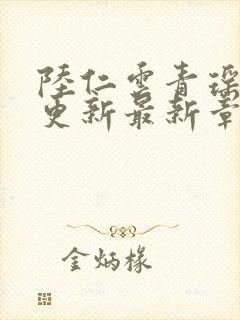 陸仁雲青瑶
更新最新章
金炳椽